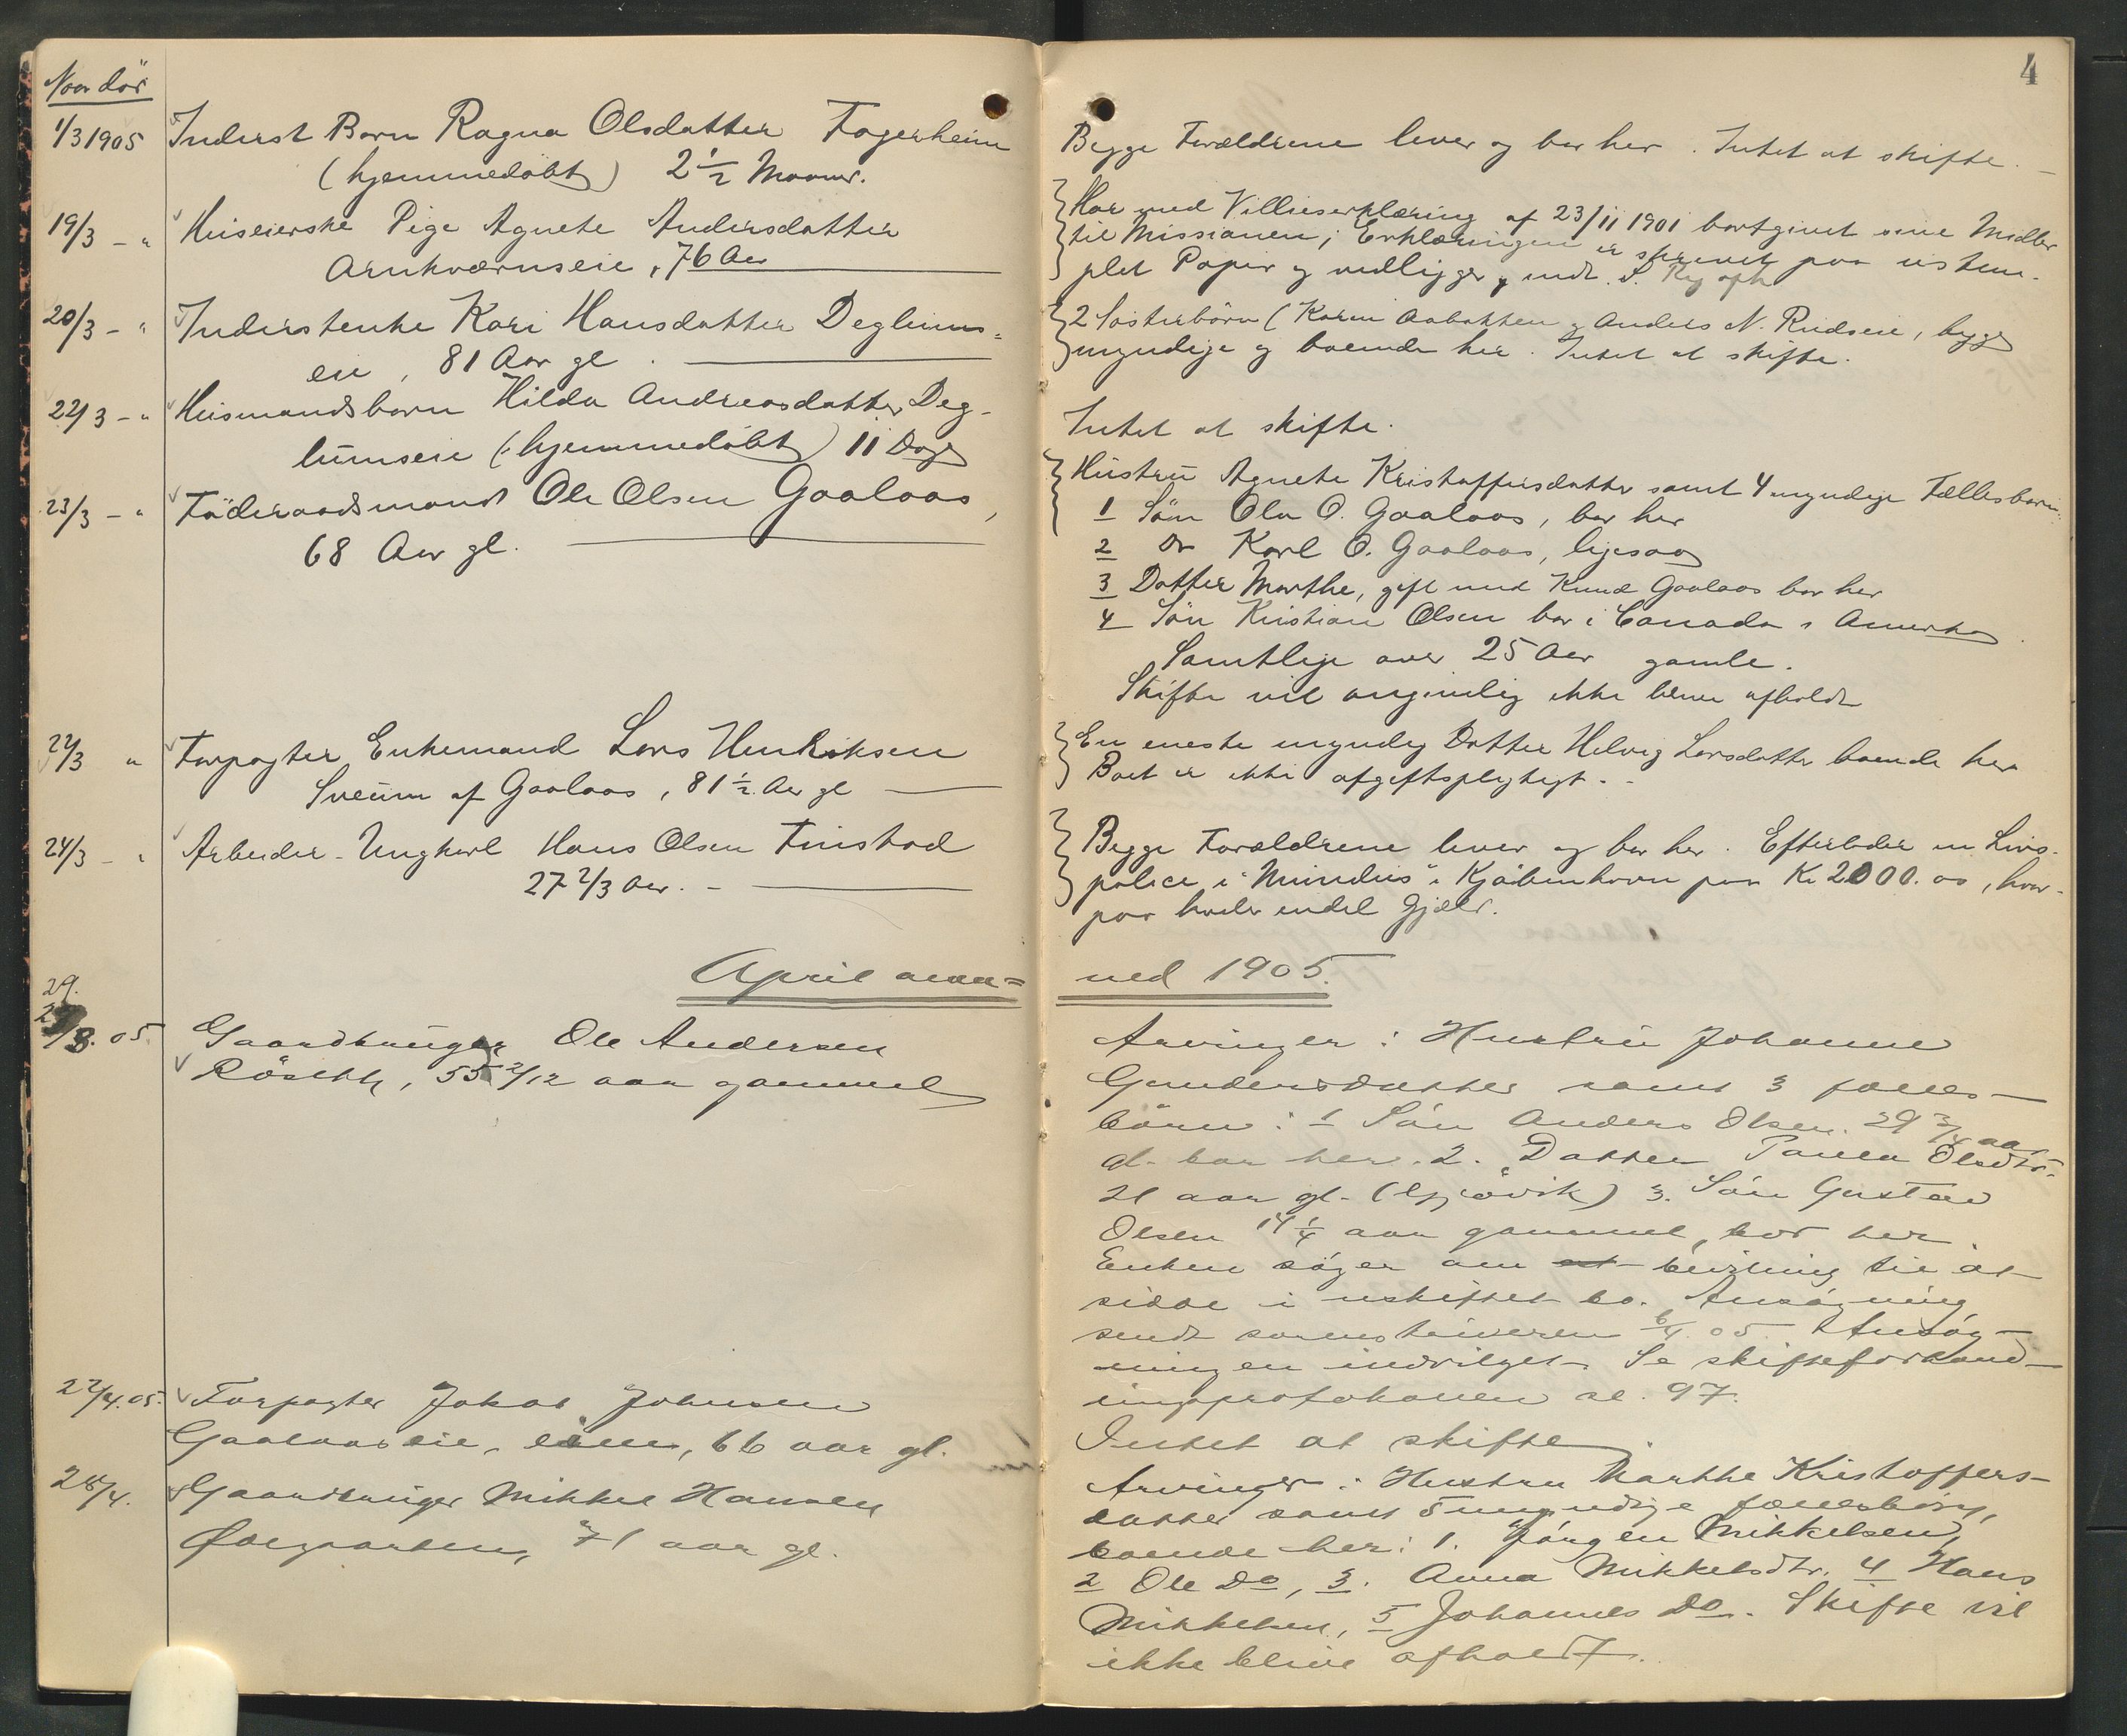 4
Naar död
1/3 1905 Inderst Barn Ragna Olsdatter Fagerheim
(hjemmedøbt) 2 1/2 Maaner.
19/3 - " Huseierske Pige Agnete Andersdatter
Arnkværnseie, 76 Aar
20/3 - " Inderstenke Kari Hansdatter Deglums=
eie, 81 Aar gl.
22/3 - " Husmandsbarn Hilda Andreasdatter Deg-
lumseie (hjemmedöbt) 11 Dage
23/3 - " Föderaadsmand Ole Olsen Gaalaas,
68 Aar gl.
22/3 " Forpagter, Enkemand Lars Henriksen
Sveum af Gaalaas, 81 1/2 Aar gl
24/3 - " Arbeider - Ungkarl Hans Olsen Finstad
27 2/3 Aar. -
April maa=
29.
/3. 05. Gaardbruger Ole Andersen
55 2/12 aar gammel
22/4. 05. Forpagter Jakob Johnsen
Gaalaaseie, 66 aar gl.
28/4. Gaardbruger Mikkel Hansen
Ødegaarden, 71 aar gl.
Begge Forældrene lever og bor her. Intet at skifte. -
Har med Villieserklæring af 23/11 1901 bortgivet sine Midler
til Missionen; Erklæringen er skrevet paa ustem-
plet Papir og vedligger
2 Søsterbørn (Karen Aabakken og Anders N. Rudseie, begge
myndige og boende her. Intet at skifte.
Intet at skifte.
Hustru Agnete Kristoffersdatter samt 4 myndige Fællesbørn:
1 Sön Ola O. Gaalaas, bor her
2 Do Karl O. Gaalaas, ligesaa
3 Datter Marthe, gift med Knud Gaalaas bor her
4 Sön Kristian Olsen bor i Canada i Amerika
Samtlige over 25 Aar gamle.
Skifte vil angivelig ikke blive afholdt
En eneste myndig Datter Helvig Larsdatter boende her
Boet er ikke afgiftspligtigt. -
Begge Forældrene lever og bor her. Efterlader en Livs-
police i "Mundus" i Kjöbenhavn paa Kr 2000.00, hvor-
paa hviler endel Gjæld.
ned 1905.
Arvinger: Hustru Johanne
Gundersdatter samt 3 fælles-
börn: 1 Sön Anders Olsen 29 3/4 aar
gl. bor her. 2. Datter Paula Olsdtr.
21 aar gl. (Gjøvik) 3. Sön Gustav
Olsen 14 1/4 aar gammel, bor her.
Enken søger om bevilling til at
sidde i uskiftet bo. Ansøgning
sendt sorenskriveren 6/4. 05. Ansøg-
ningen indvilget. Se skifteforhand-
lingsprotokollen se. 97.
Intet at skifte.
Arvinger: Hustru Marthe Kristoffers-
datter samt 5 myndige fællesbörn,
boende her: 1. Jörgen Mikkelsen,
2 Ole Do, 3. Anna Mikkelsdtr. 4 Hans
Mikkelsen, 5 Johannes Do. Skifte vil
ikke blive afholdt.